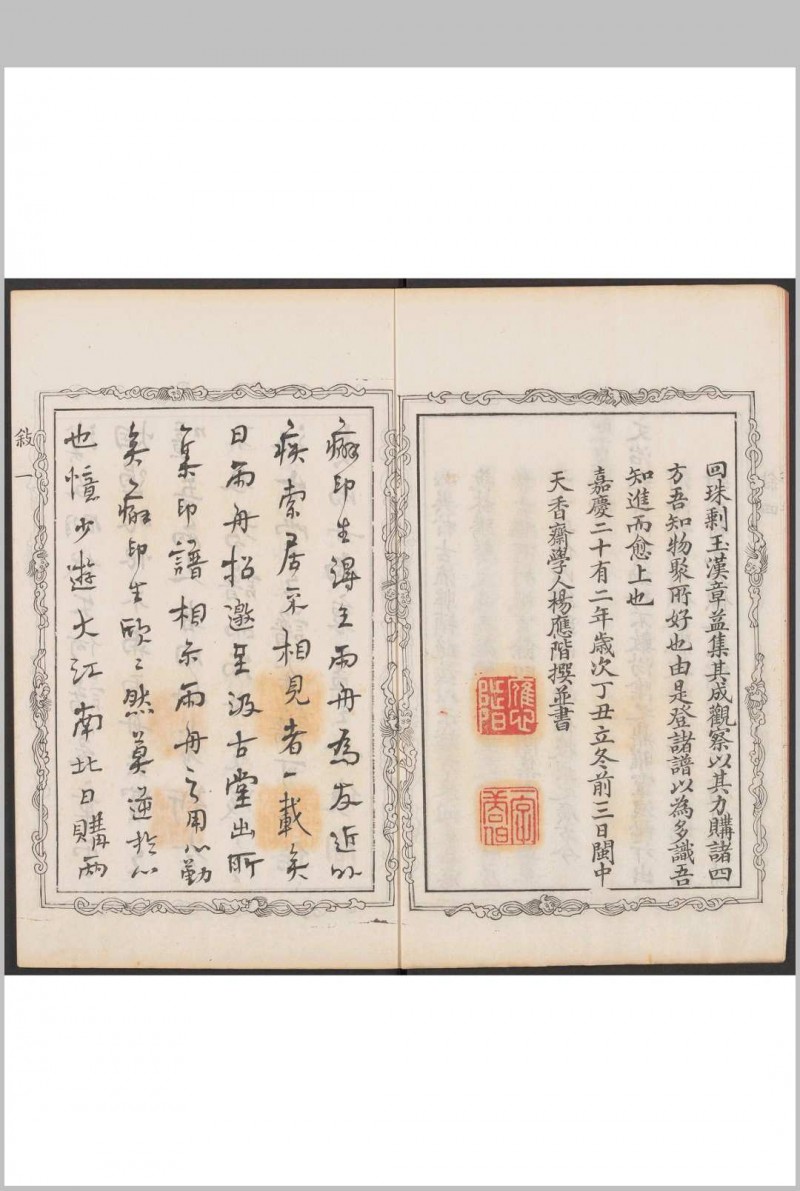 回珠剩玉漢章益集其成觀察以其力購諸四
方吾知物聚所好也由是登諸譜以為多識吾
知進而愈上也
嘉慶二十有二年歲次丁丑立冬前三日閩中
天香齋學人楊應階撰並書
癖印生得主雨舟為友近以
疾索居不相見者一載矣
日雨舟招邀至汲古堂出所
集印譜相示雨舟之用心勤
矣癖印生欣〻然莫逆於心
也憶少遊大江南北日購兩
敍 一